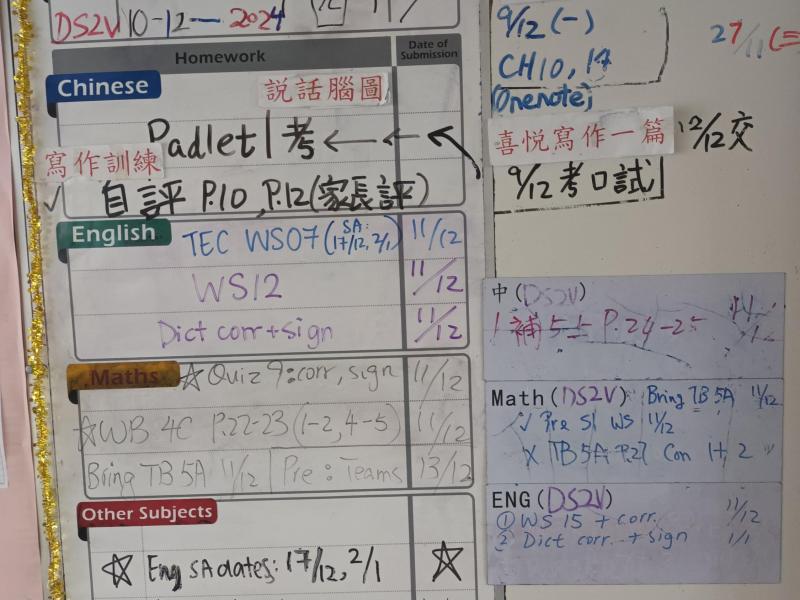 DS2V 10-12-2024
Homework
Date of Submission
Chinese
說話腦圖
Padlet 1考
寫作訓練
✓ 自評 P.10, P.12(家長評)
English
TEC WS07 (SA: 17/12, 2/1) 11/12
WS12 11/12
Dict corr + sign 11/12
Maths
☆ Quiz 9: corr, sign 11/12
☆ WB 4C P.22-23 (1-2, 4-5) 11/12
Bring TB 5A 11/12 Pre: Teams 13/12
Other Subjects
☆ Eng SA dates: 17/12, 2/1 ☆
9/12 (一)
CH10, 14
(Onenote)
27/11 (三
喜悅寫作一篇 12/12交
9/12 考口試
中 (DS2V)
補5上 P.24-25
Math (DS2V) Bring TB 5A 11/12
✓ Pre S1 WS 11/12
X TB 5A P.27 Con 1+2 "
ENG (DS2V)
① WS 15 + corr. 11/12
② Dict corr. + sign 1/1